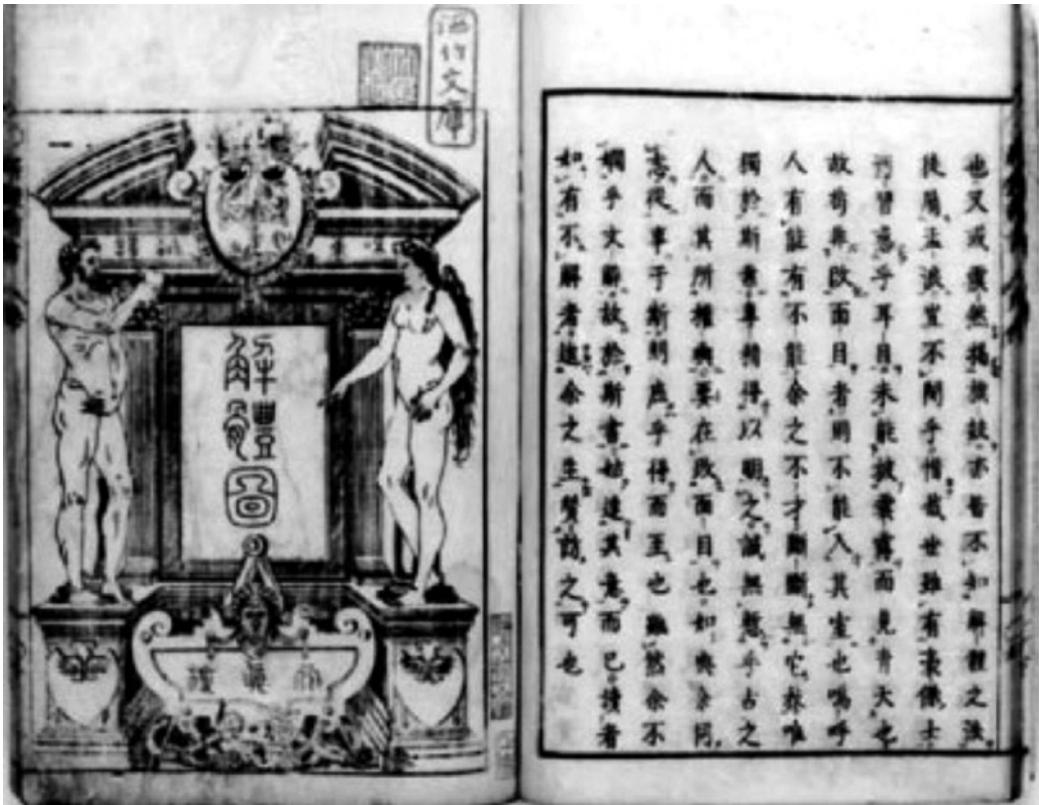 也又或靈然揭旗鼓亦皆不知解體之法
徒屬孟浪豈不閔乎惜哉世雖有豪傑士
汚習惑乎耳目未能披雲霧而見青天也
故苟非改面目者則不能入其室也嗚呼
人有能有不能余之不才斷斷無它技唯
獨於斯業專精得以明之誠無愧乎古之
人而其所權輿要在改面目也如與余同
志從事于斯則庶乎得而至也雖然余不
嫻乎文辭故於斯書姑達其意而已讀者
如有不解者逮余之生質訪之可也
酒竹文庫
解體
圖